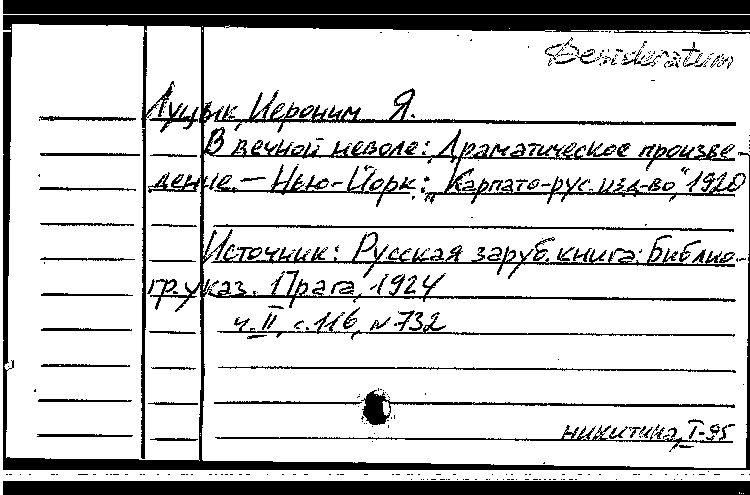 Desideratum
Луцык, Иероним Я.
В вечной неволе: Драматическое произве-
дение. — Нью-Йорк: „Карпато-рус. изд-во", 1920
Источник: Русская заруб. книга: Библио-
гр. указ. Прага, 1924
ч. II, с. 116, N 732
Никитина, I-95